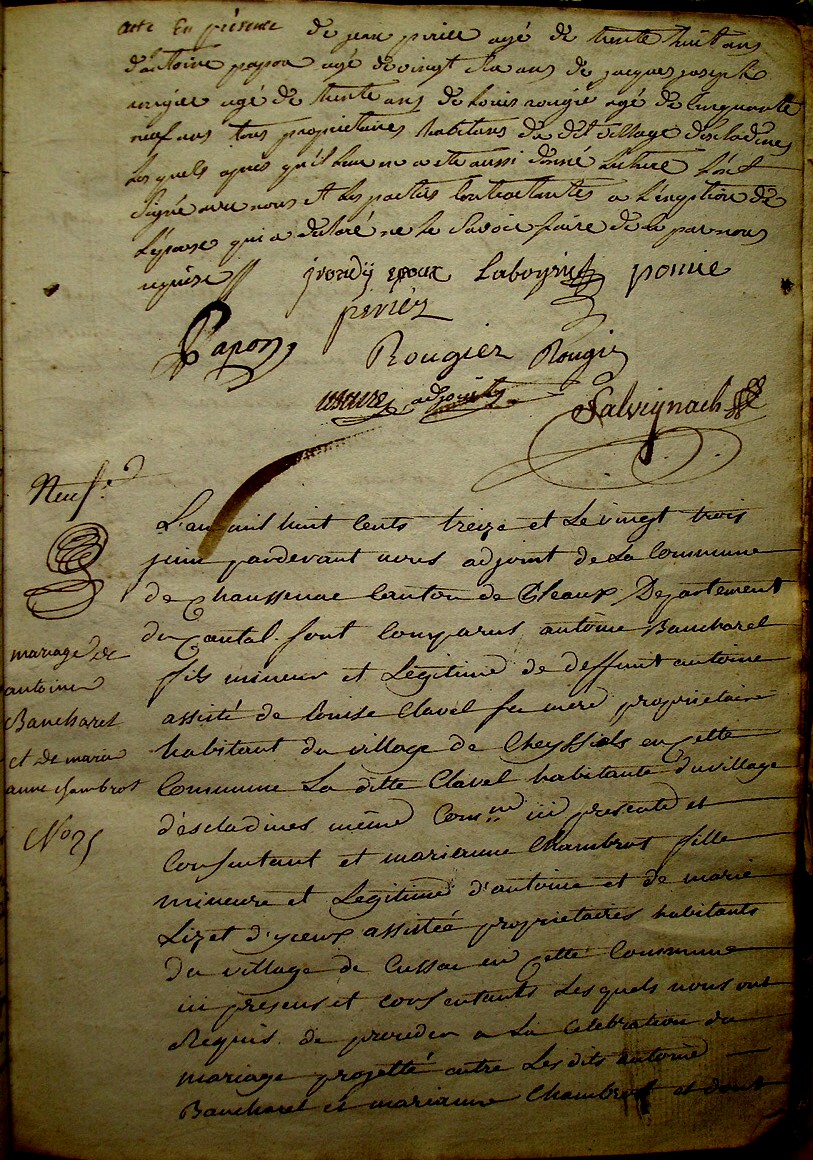 acte En présence de jean perier agé de trente huit ans
d'antoine papon agé de vingt six ans de jacques joseph
rougier agé de trente ans de Louis rougie agé de Cinquante
neuf ans tous proprietaires habitans du dit village d'escladines
Les quels apres qu'il Leur en a eté aussi donné Lecture L'ont
Signé avec nous et Les parties Contractantes a L'exeption de
L'épouse qui a declaré ne Le Savoir faire de ce par nous
requise
époux Laboyrie
periér
Papon Rougier Rougie
adjoint
Salvignach
Neuf.e
L'an mil huit Cents treize et Le vingt trois
juin pardevant nous adjoint de La Commune
de Chaussenac Canton de Pleaux Departement
du Cantal. sont Comparus antoine Bancharel
fils mineur et Légitime de deffunt antoine
assisté de Louise Clavel sa mere proprietaire
habitant du village de Cheyssiols en Cette
Commune La ditte Clavel habitante du village
d'escladines même Com.ne ici presente et
Consentant et marianne Chambrot fille
mineure et Legitime d'antoine et de marie
Lizet d'yceux assistée proprietaires habitants
du village de Cussac en Cette Commune
ici presens et consentants Lesquels nous ont
Requis de proceder a La Celebration du
mariage projetté entre Les dits antoine
Bancharel et marianne Chambrot et dont
mariage de
antoine
Bancharel
et de marie
anne chambrot
No 25